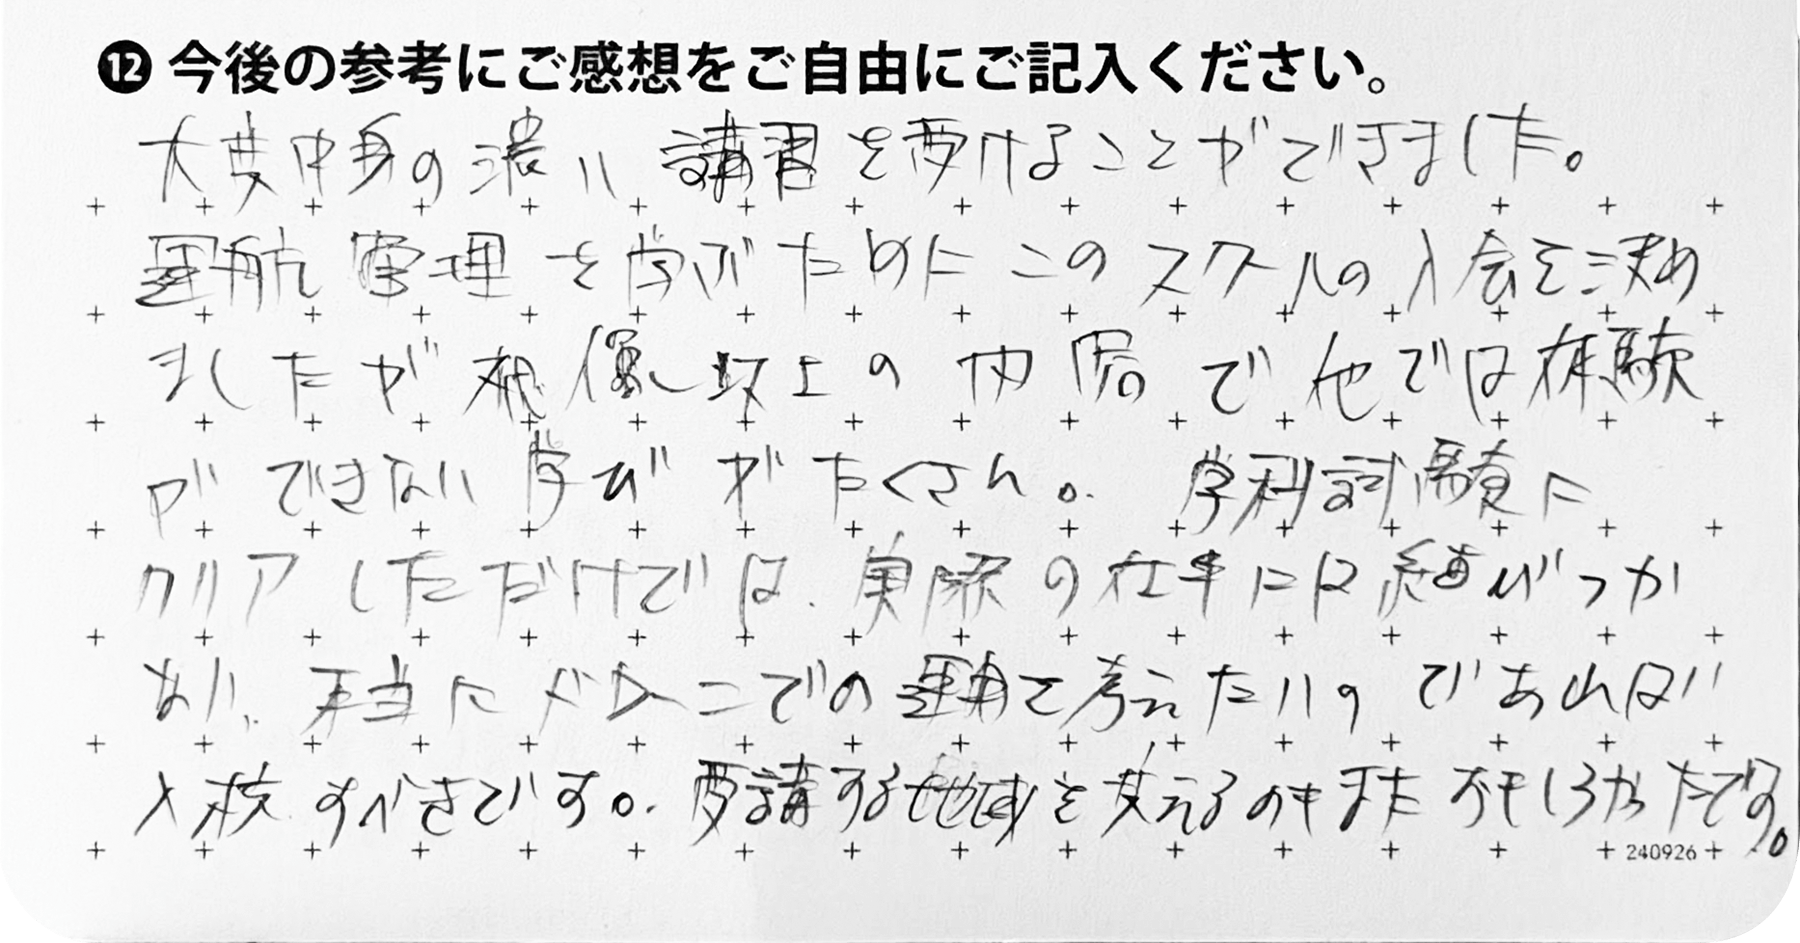 ⓬ 今後の参考にご感想をご自由にご記入ください。
大変中身の濃い講習を受けることができました。
運航管理を学ぶためにこのスクールの入会を決め
ましたが想像以上の内容で他では体験
ができない学びがたくさん。学科試験に
クリアしただけでは、実際の仕事には結びつか
ない、本当にドローンでの運用を考えたいのであれば
入校すべきです。受講する地域を変えるのもまたおもしろかったです。
240926